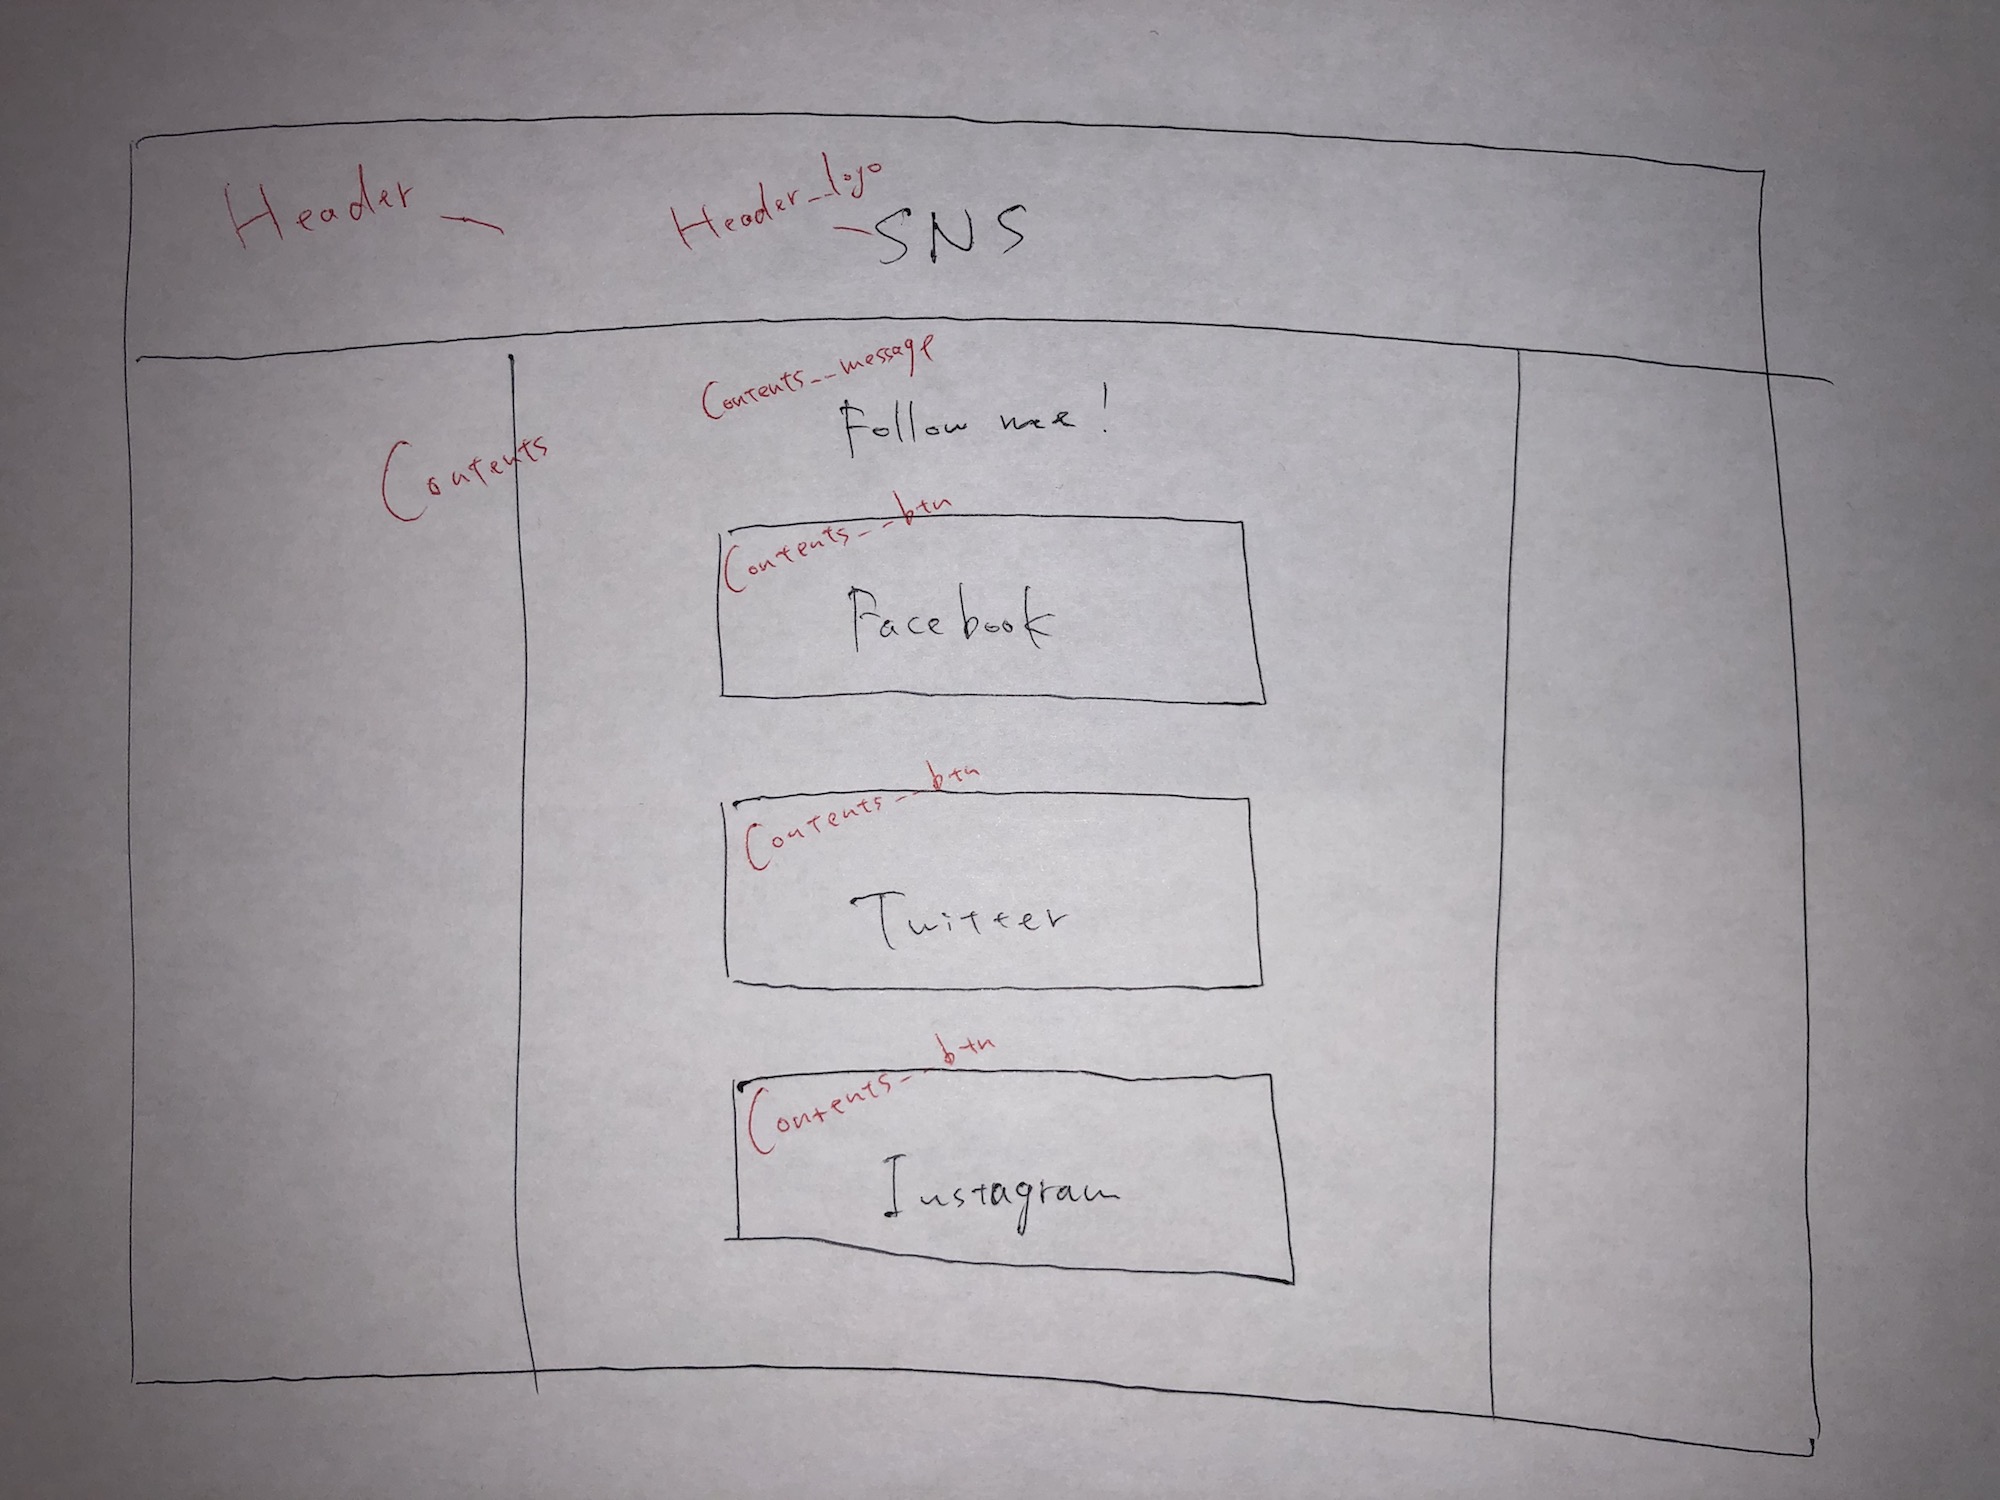 Header
Header_logo
SNS
Contents__message
Follow me!
Contents
Contents__btn
Facebook
Contents__btn
Twitter
Contents__btn
Instagram